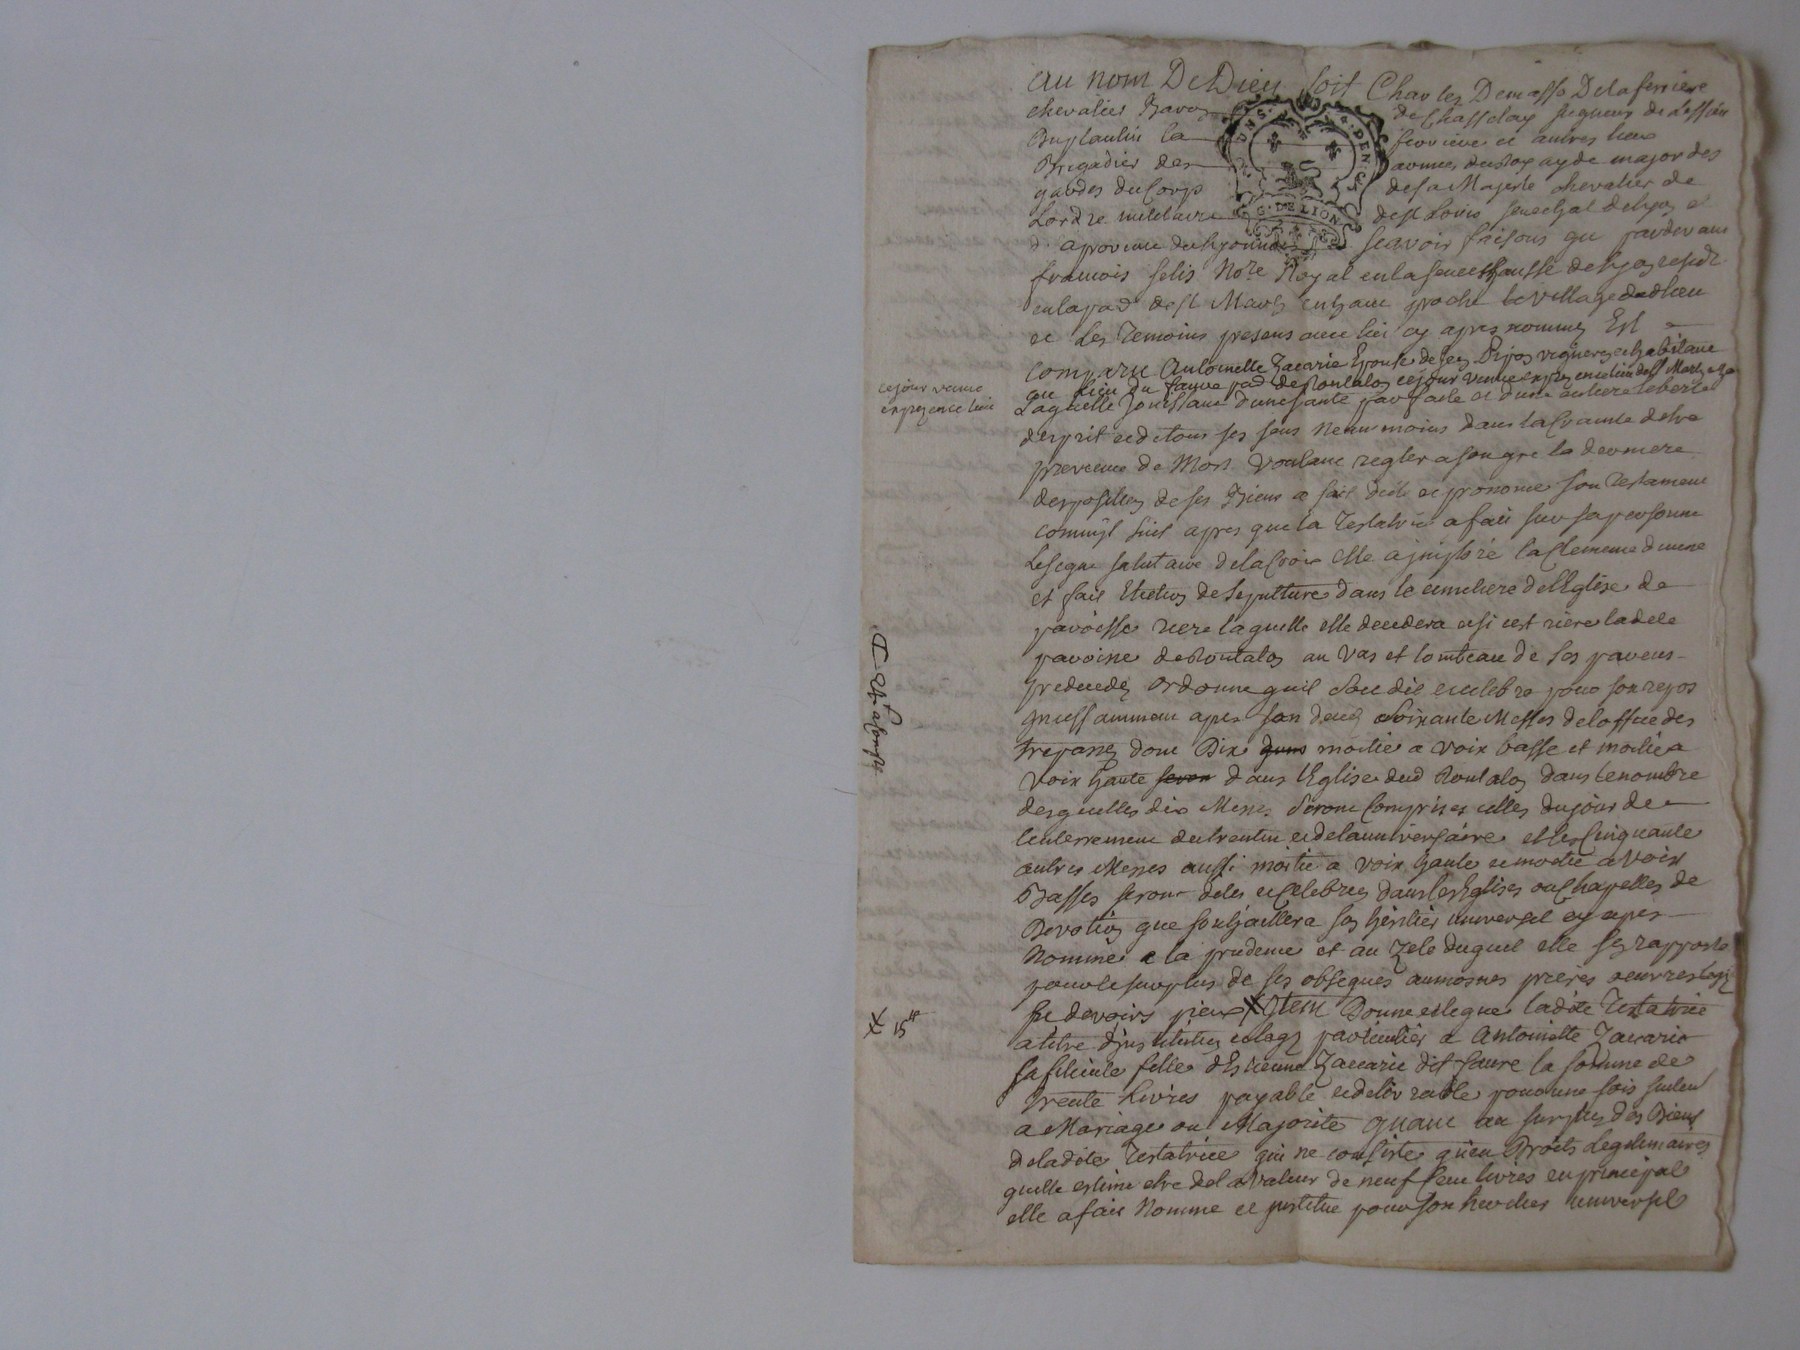 au nom De Dieu soit Charles Demasso Delaferriere
chevalier Baron de Chasselay seigneur de Lissieu
Duplantin la ferriere et autres lieux
Brigadier des armees du Roy ayde major des
gardes du Corps de sa Majeste chevalier de
Lordre militaire de st Louis senechal de Lyon et
de la province du Lyonnois scavoir faisons que pardevant
francois felis Nore Royal en la senechaussee de Lyon resid.
et Les Temoins presens avec lui cy apres nommes Est
comparu Antoinette Zacarie Epouse de
ce jour venue
expres en ce lieu
Laquelle Jouissant d'une sante parfaite et d'une entiere liberte
desprit et de tous ses sens neanmoins dans la crainte detre
prevenue de Mort voulant regler a son gre la derniere
disposition de ses Biens a fait dicte et prononce son Testament
comm'il suit apres que la Testatrice a fait sur sa personne
Le signe salutaire de la Croix elle a jmplore la Clemence divine
et fait Election de sepulture dans le cimetiere de lEglise de
paroisse riere laquelle elle decedera et si cest riere ladite
paroisse de Rontalon au Vas et tombeau de ses parens
predecedes ordonne quil soit dit et celebre pour son repos
jncessamment apres son deces soixante Messes de loffice des
trepasses dont Dix moitie a voix basse et moitie a
Voix haute dans lEglise dud Rontalon dans le nombre
desquelles dix Messes seront Comprises celles du jour de
lenterrement du trentin et de lanniversaire et les Cinquante
autres Messes aussi moitie a voix haute et moitie a Voix
Basses seront dites et Celebrees dans les Eglises ou Chapelles de
Devotion que souhaittera son heritier universel cy apres
Nomme a la prudence et au zele duquel elle sen rapporte
pour le surplus de ses obseques aumosnes prieres oeuvres
et devoirs pieux Jtem Donne et legue ladite Testatrice
15#
a titre d'jnstitution et legs particulier a Antoinette Zacarie
sa filieule fille dEstienne Zacarie dit faure la somme de
trente Livres payable et delivrable pour une fois seulem
a Mariage ou Majorite quant au surplus des Biens
de ladite Testatrice qui ne consiste qu'en Droits Legitimaires
quelle estime etre de la valeur de neuf cent livres en principal
elle a fait Nomme et jnstitue pour son heritier universel